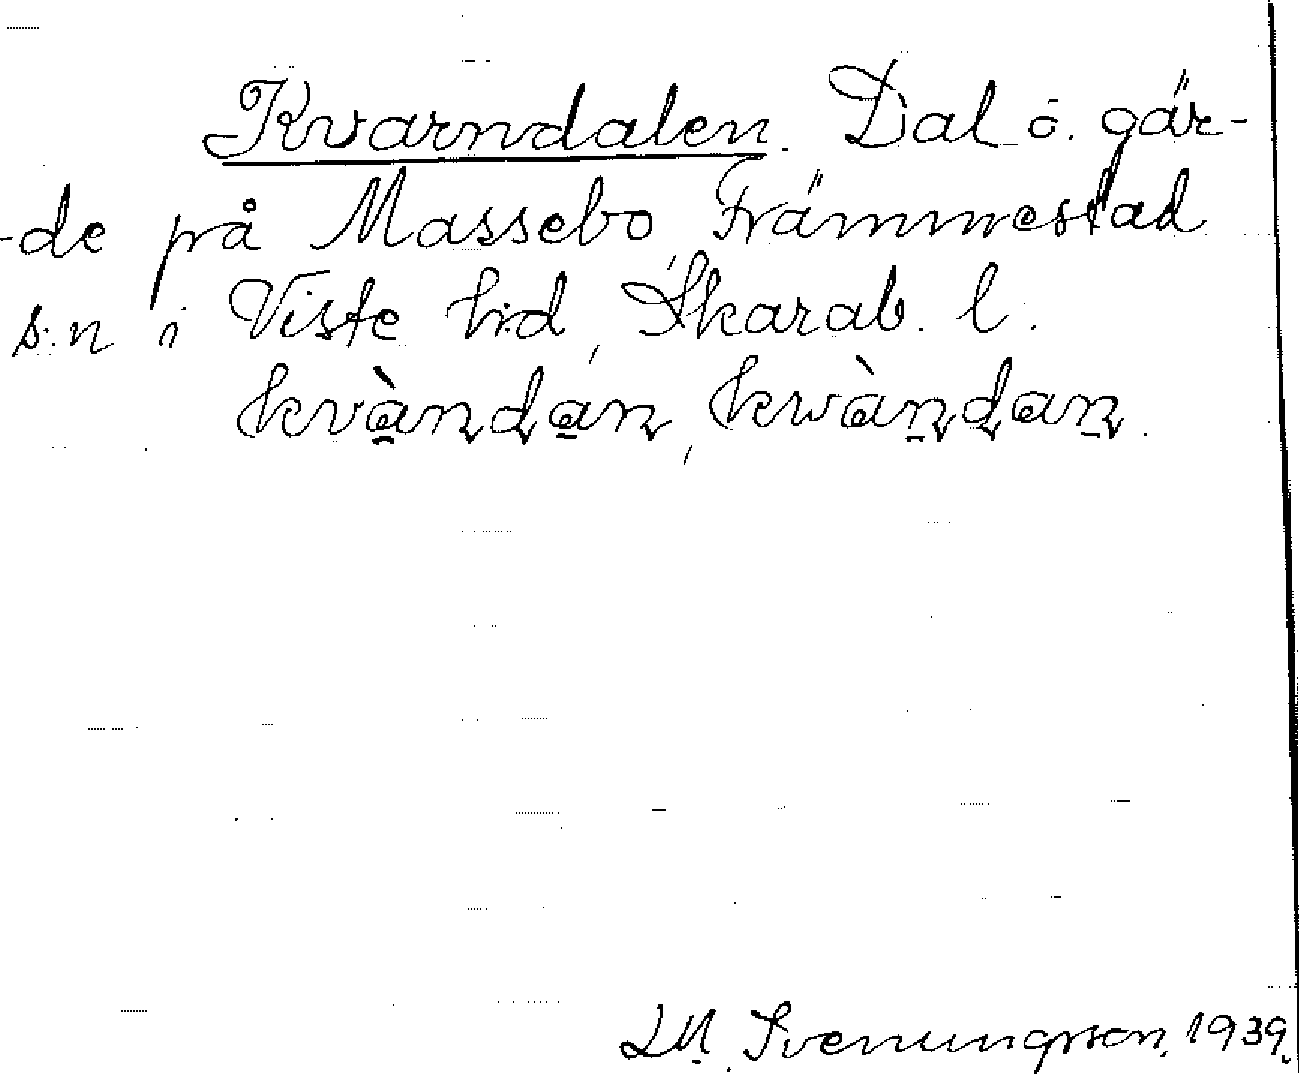 Kvarndalen. Dal o. gär-
-de på Massebo, Främmestad
s:n i Viste h:d, Skarab. l.
kvàndan, kwàndan.
Svenungsson, 1939.